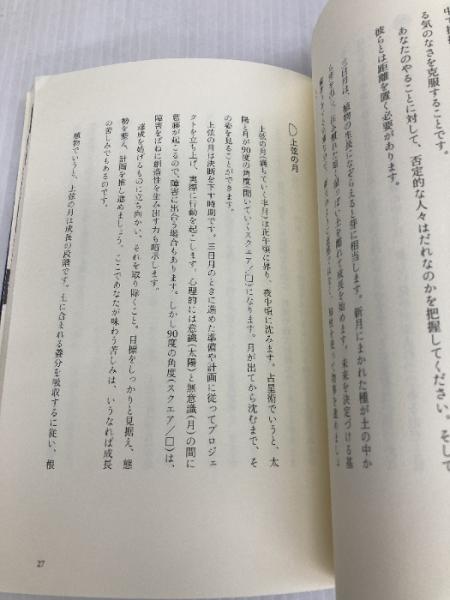 中で
る気のなさを克服することです。
あなたのやることに対して、否定的な人々はだれなのかを把握してください。そして
彼らとは距離を置く必要があります。
三日月は、植物の生長になぞらえると芽に相当します。新月にまかれた種が土の中か
を離れて成長を始めます。未来を決定づける基
上弦の月
上弦の月(満ちていく半月)は正午頃に昇り、夜中頃に沈みます。占星術でいうと、太
陽と月が90度の角度開いていく(スクエア/□)になります。月が出てから沈むまで、そ
の姿を見ることができます。
上弦の月は決断を下す時期です。三日月のときに進めた準備や計画に従ってプロジェ
クトを立ち上げ、実際に行動を起こします。心理的には意識(太陽)と無意識(月)の間に
葛藤が起こるので、障害に出合う場合もあります。しかし90度の角度(スクエア/□)は、
障害をばねに創造性を生み出す力も暗示します。
達成を妨げるものに立ち向かい、それを取り除くこと。目標をしっかりと見据え、態
勢を整え、計画を推し進めましょう。ここであなたが味わう苦しみは、いうなれば成長
の苦しみでもあるのです。
植物でいうと、上弦の月は成長の段階です。土に含まれる養分を吸収するに従い、根
27